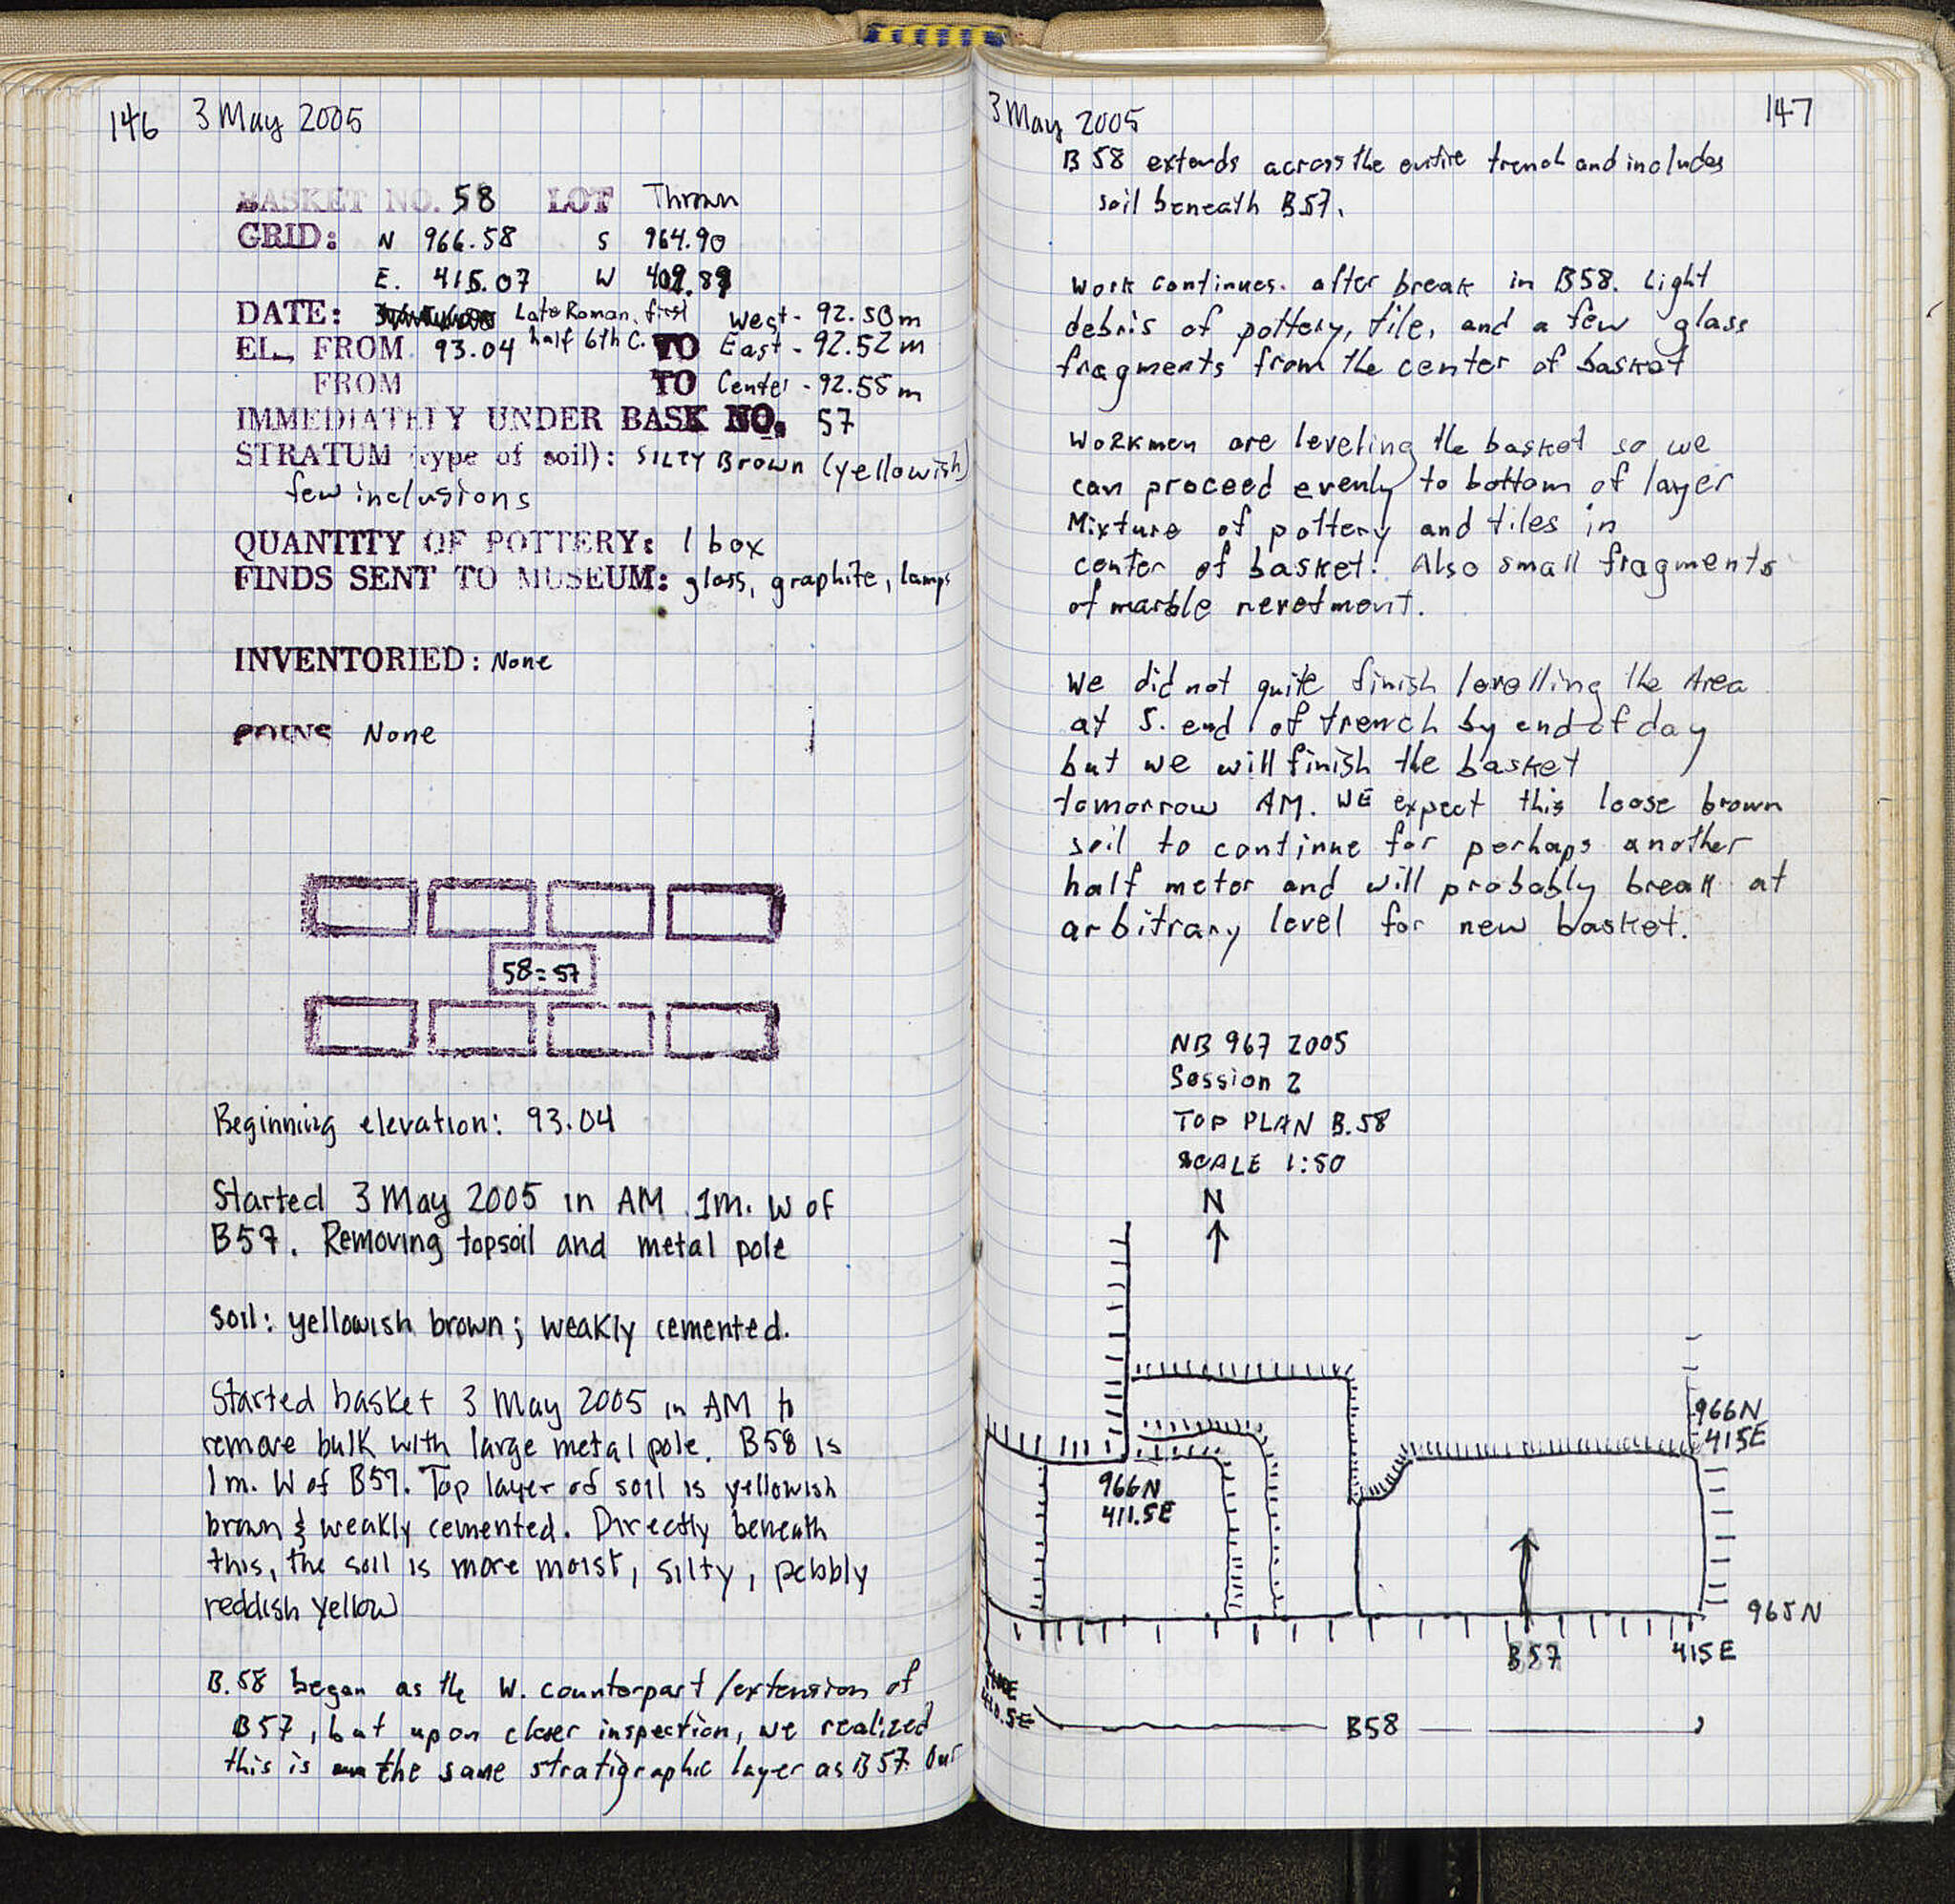 146 3 May 2005
BASKET NO. 58 LOT Thrown
GRID: N 966.58 S 964.90
E. 415.07 W 409.89
DATE: Late Roman, first West - 92.50m
half 6th C.
EL. FROM 93.04 TO East - 92.52m
FROM TO Center - 92.55m
IMMEDIATELY UNDER BASK NO. 57
STRATUM (type of soil): SILTY Brown (yellowish)
few inclusions
QUANTITY OF POTTERY: 1 box
FINDS SENT TO MUSEUM: glass, graphite, lamps
INVENTORIED: None
COINS None
58=57
Beginning elevation: 93.04
Started 3 May 2005 in AM 1m. W of
B57. Removing topsoil and metal pole
Soil: yellowish brown; weakly cemented.
Started basket 3 May 2005 in AM to
remove bulk with large metal pole. B58 is
1m. W of B57. Top layer of soil is yellowish
brown & weakly cemented. Directly beneath
this, the soil is more moist, silty, pebbly
reddish yellow
B.58 began as the W. counterpart/extension of
B57, but upon closer inspection, we realized
this is the same stratigraphic layer as B57. Our
3 May 2005 147
B 58 extends across the entire trench and includes
soil beneath B57.
Work continues. after break in B58. Light
debris of pottery, tile, and a few glass
fragments from the center of basket
Workmen are leveling the basket so we
can proceed evenly to bottom of layer
Mixture of pottery and tiles in
center of basket. Also small fragments
of marble revetment.
We did not quite finish levelling the Area
at S. end of trench by end of day
but we will finish the basket
tomorrow AM. WE expect this loose brown
soil to continue for perhaps another
half meter and will probably break at
arbitrary level for new basket.
NB 967 2005
Session 2
TOP PLAN B.58
SCALE 1:50
N
966N
415E
966N
411.5E
965N
B57 415E
410.5E
B58